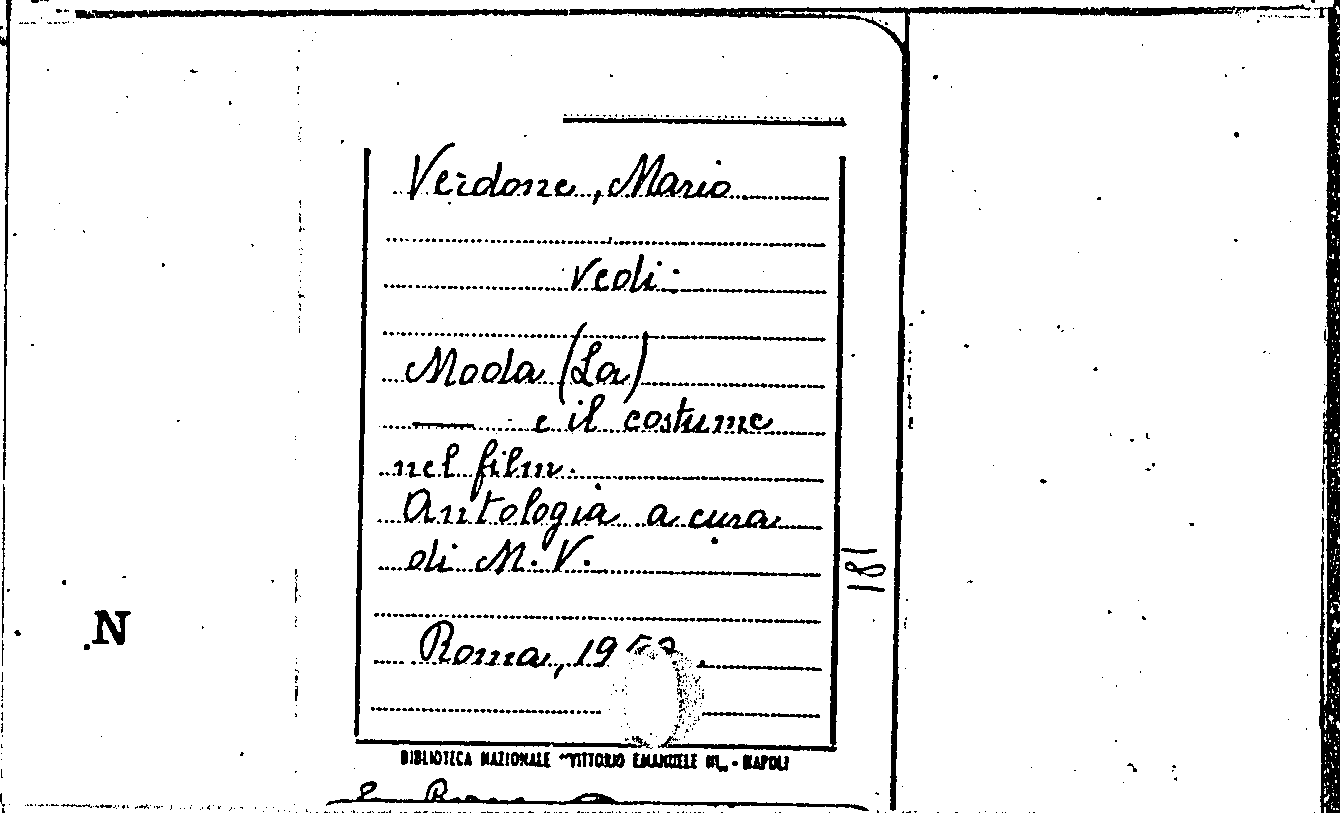 Verdone, Mario
Vedi:
Moda (La)
—— e il costume
nel film.
Antologia a cura
di M. V.
181
N
Roma,
BIBLIOTECA NAZIONALE "VITTORIO EMANUELE III„ - NAPOLI